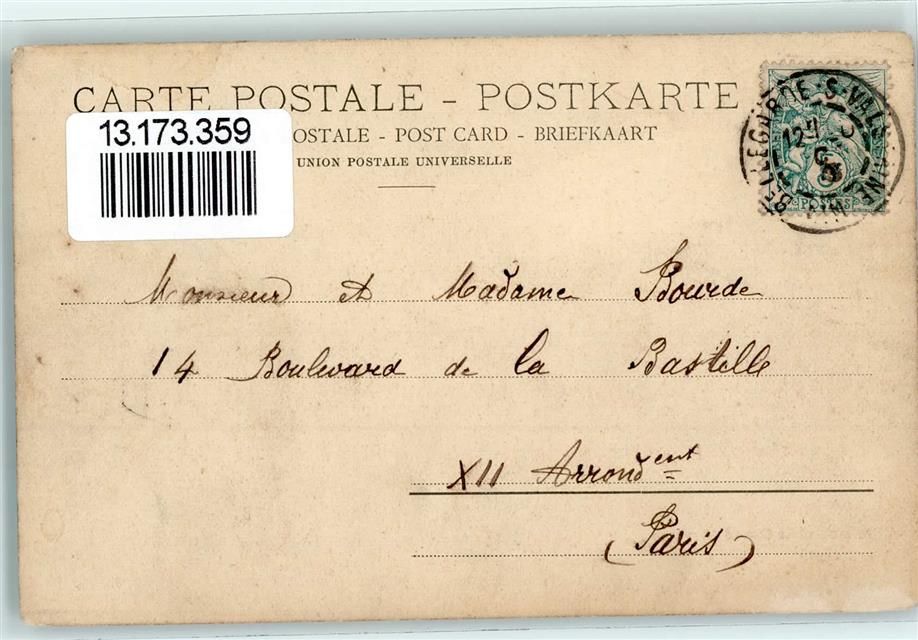 CARTE POSTALE - POSTKARTE
13.173.359
OSTALE - POST CARD - BRIEFKAART
UNION POSTALE UNIVERSELLE
BELLEGARDE-S-VALSERINE
POSTES
Monsieur et Madame Bourde
14 Boulevard de la Bastille
XII Arrondent
(Paris)